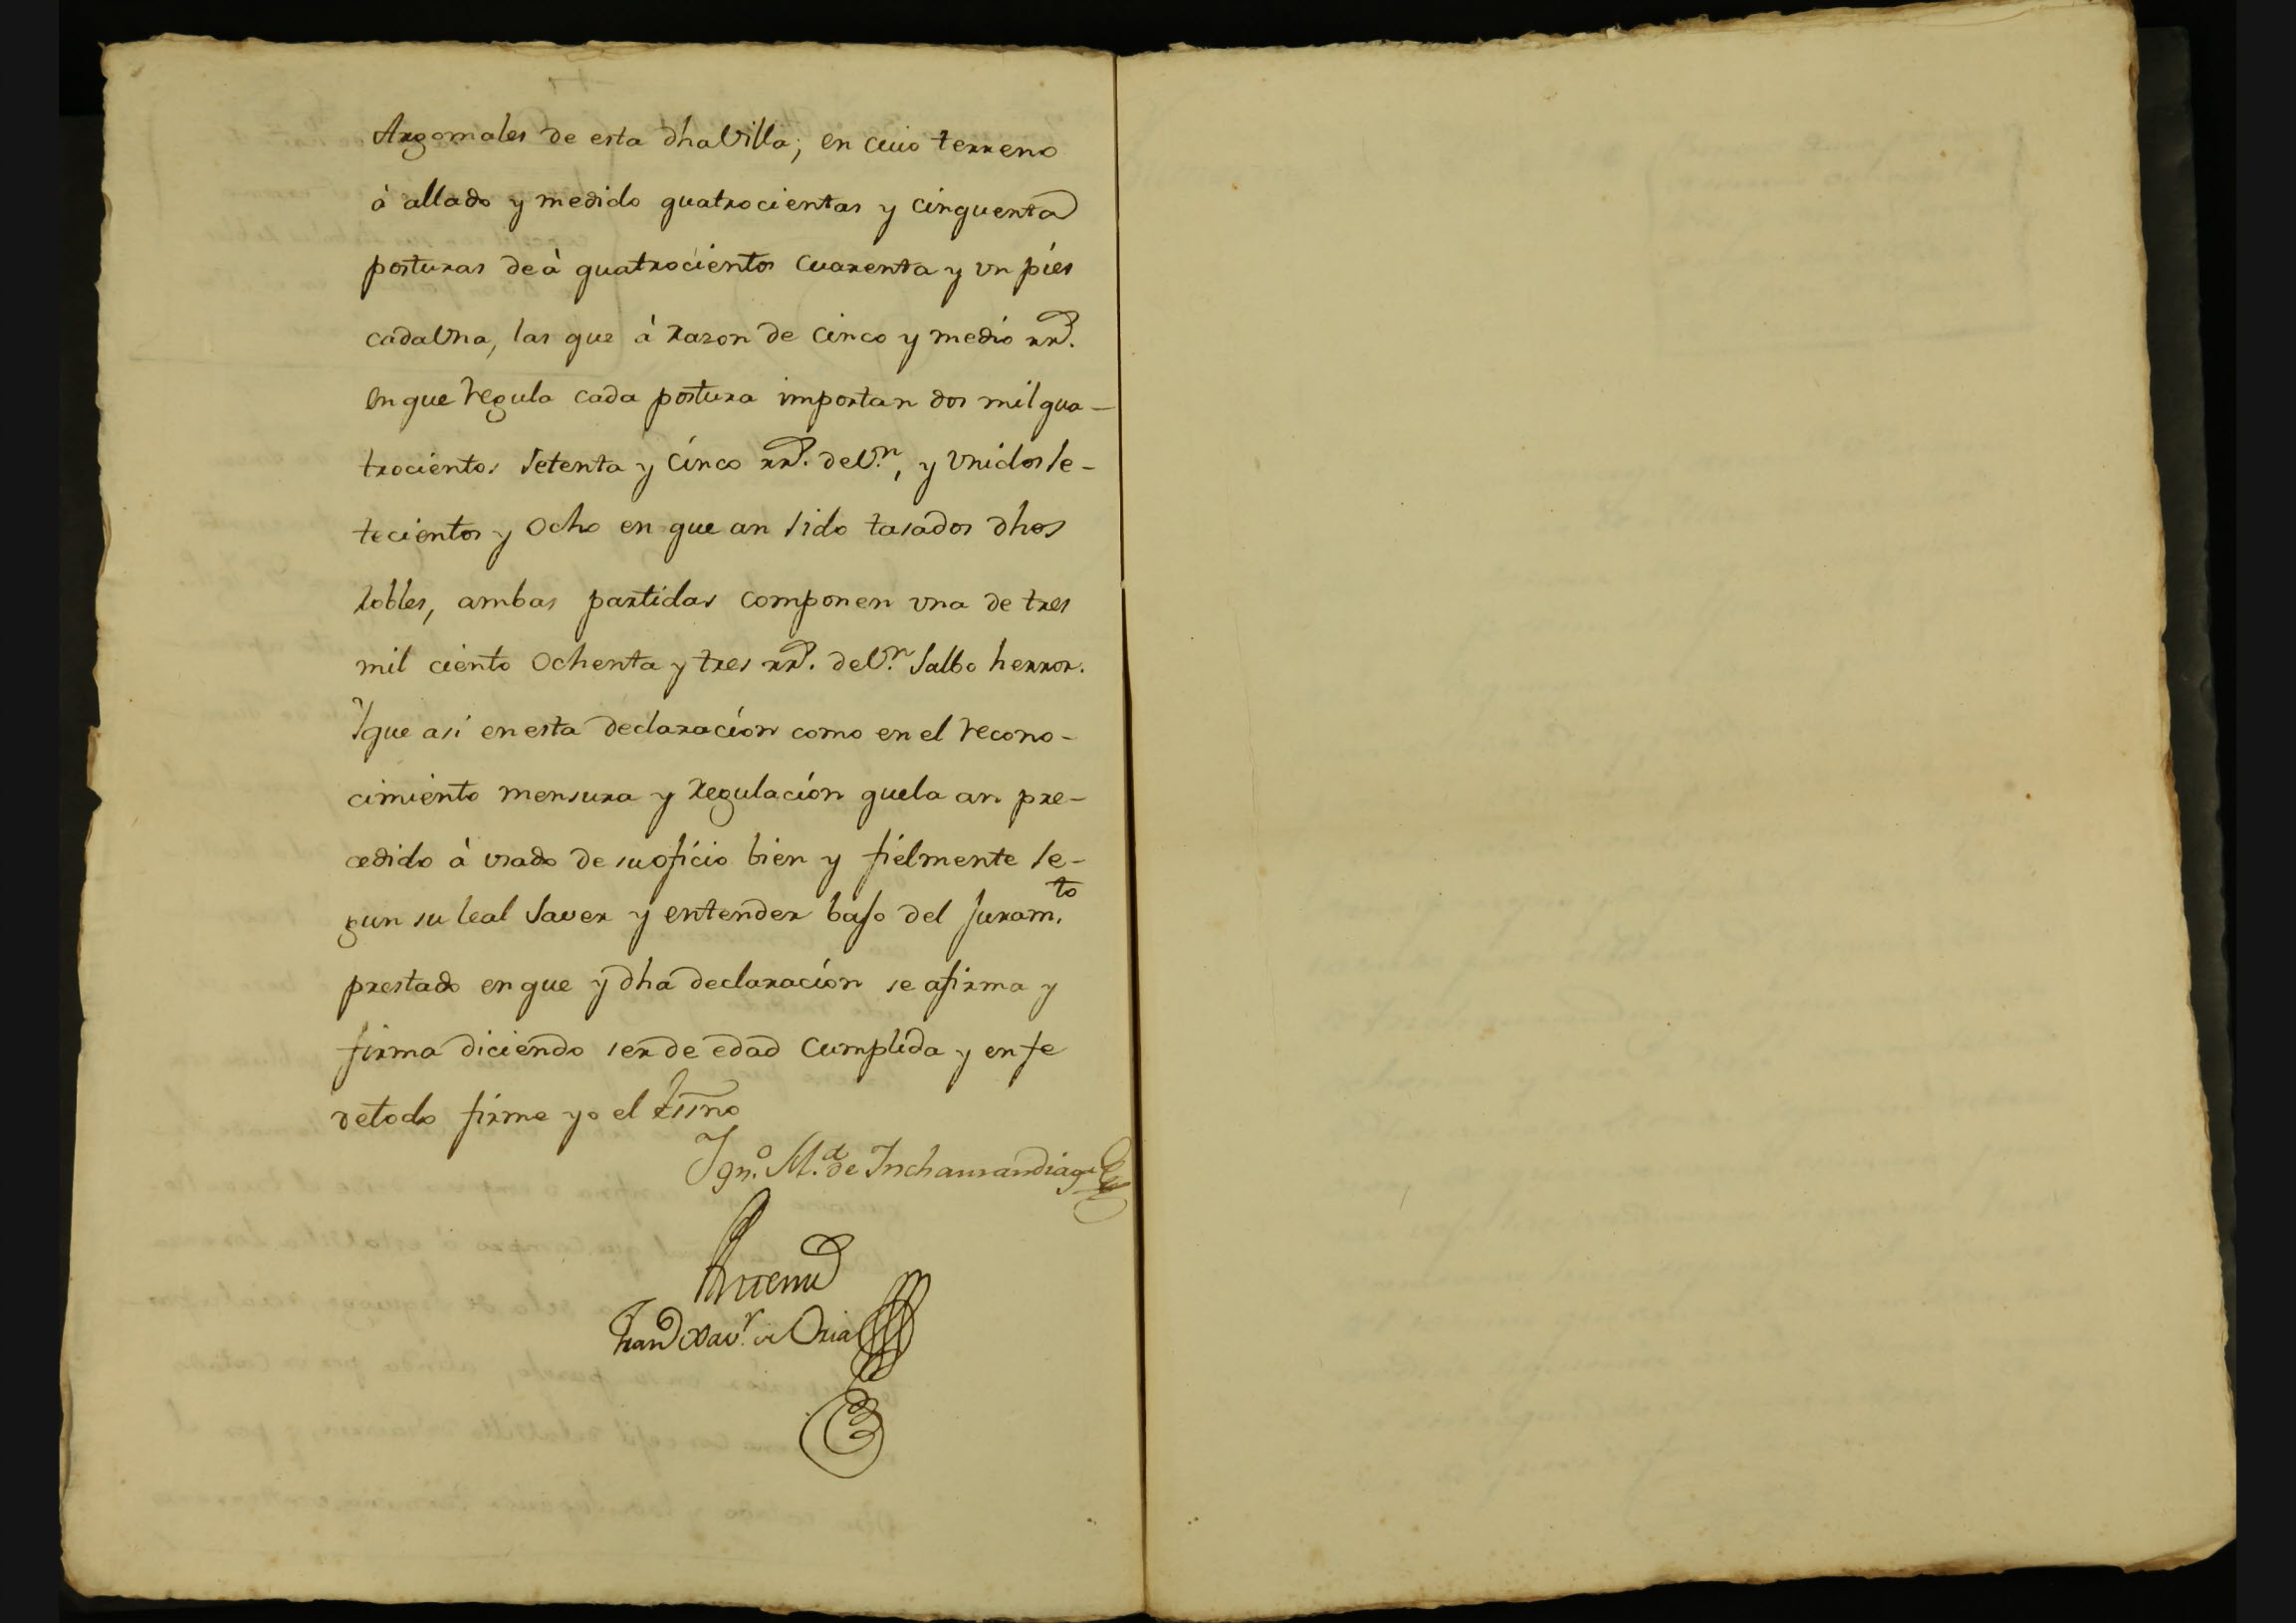 Argomales de esta dha Villa; en cuio terreno
à allado y medido quatrocientas y cinquenta
posturas de à quatrocientos cuarenta y un pies
cada Una, las que à razon de cinco y medio rr.^s
en que regula cada postura importan dos mil qua-
trocientos setenta y cinco rr.^s de V.^n, y Unidos se-
tecientos y ocho en que an sido tasados dhos
robles, ambas partidas componen una de tres
mil ciento ochenta y tres rr.^s de V.^n salbo herror.
Y que asi en esta declaracion como en el recono-
cimiento mensura y regulacion que la an pre-
cedido à usado de su oficio bien y fielmente se-
gun su leal saver y entender bajo del juram.^to
prestado en que y dha declaracion se afirma y
firma diciendo ser de edad cumplida y en fe
de todo firme yo el Essno
Ign.^o M.^a de Inchaurandiaga
Antemi
Fran^co Xav.^r de Oria